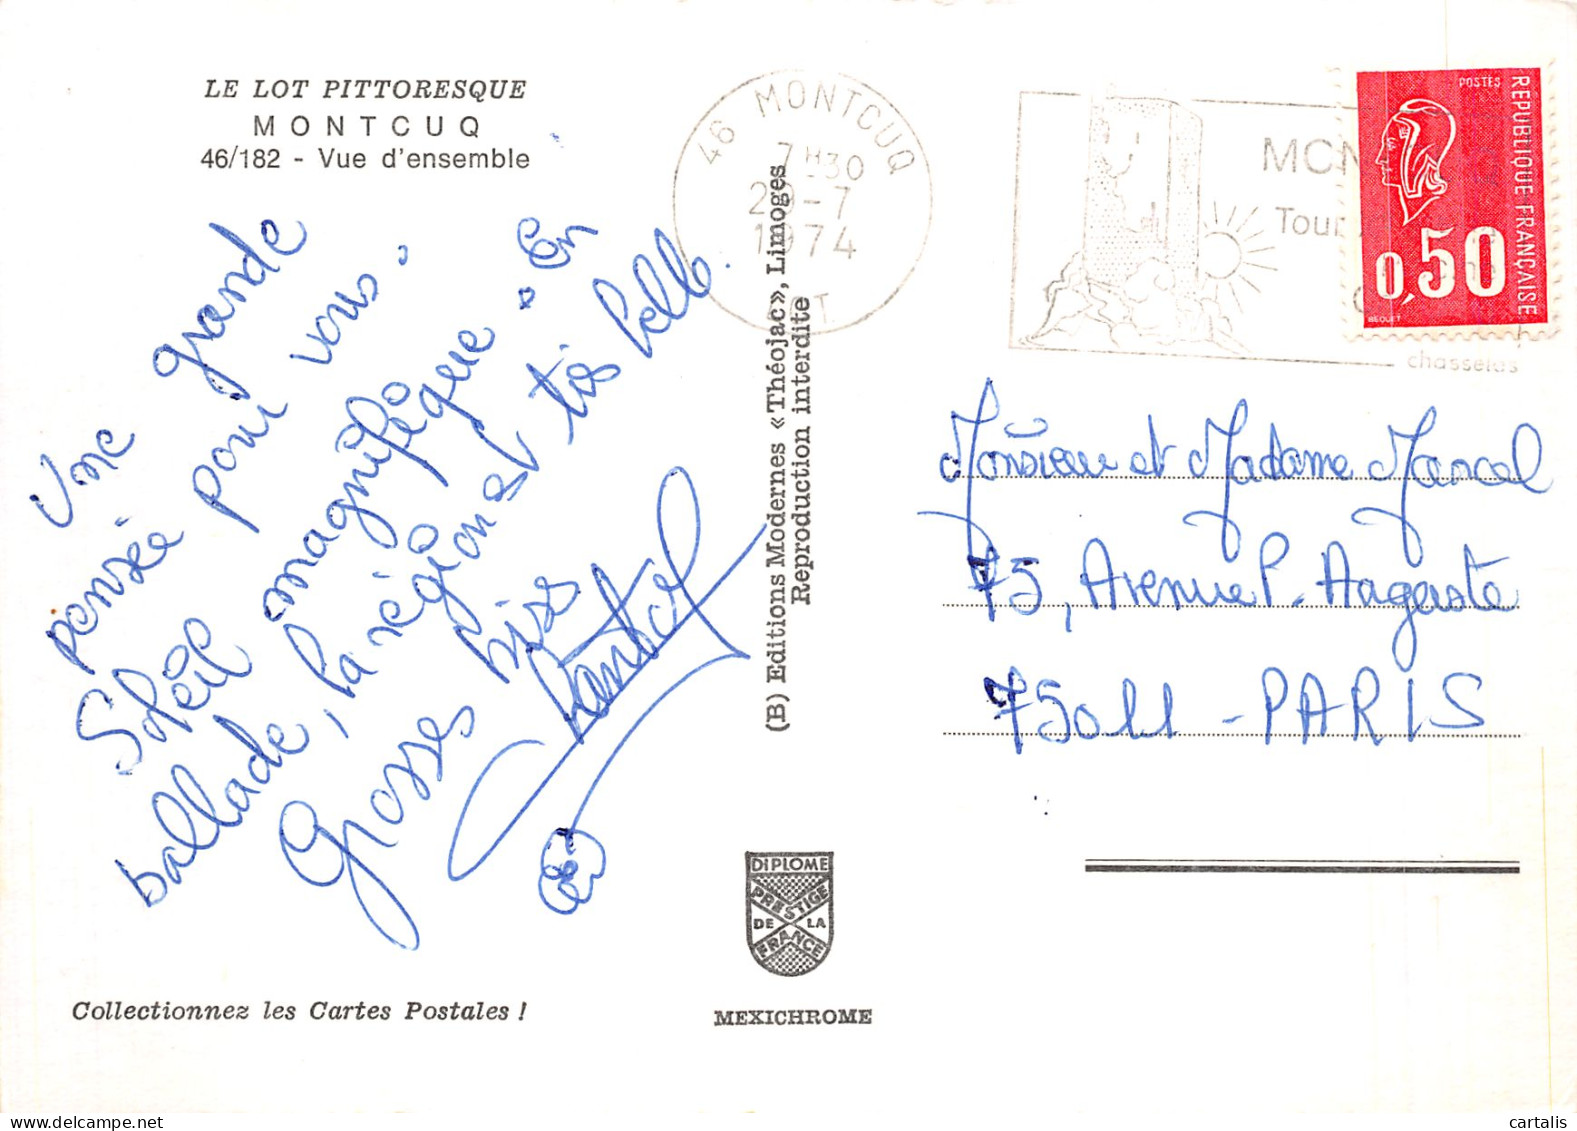 LE LOT PITTORESQUE
MONTCUQ
46/182 - Vue d'ensemble
Une grande
pensée pour vous.
Soleil magnifique. En
ballade, la région est très belle.
Grosses bises
46 MONTCUQ
7H30
29-7
1974
Tour
chasselas
POSTES
REPUBLIQUE FRANÇAISE
0,50
BEQUET
(B) Editions Modernes «Théojac», Limoges
Reproduction interdite
Monsieur et Madame Marcel
75, Avenue P. Auguste
75011 - PARIS
DIPLOME
PRESTIGE
DE LA
FRANCE
Collectionnez les Cartes Postales !
MEXICHROME
cartalis